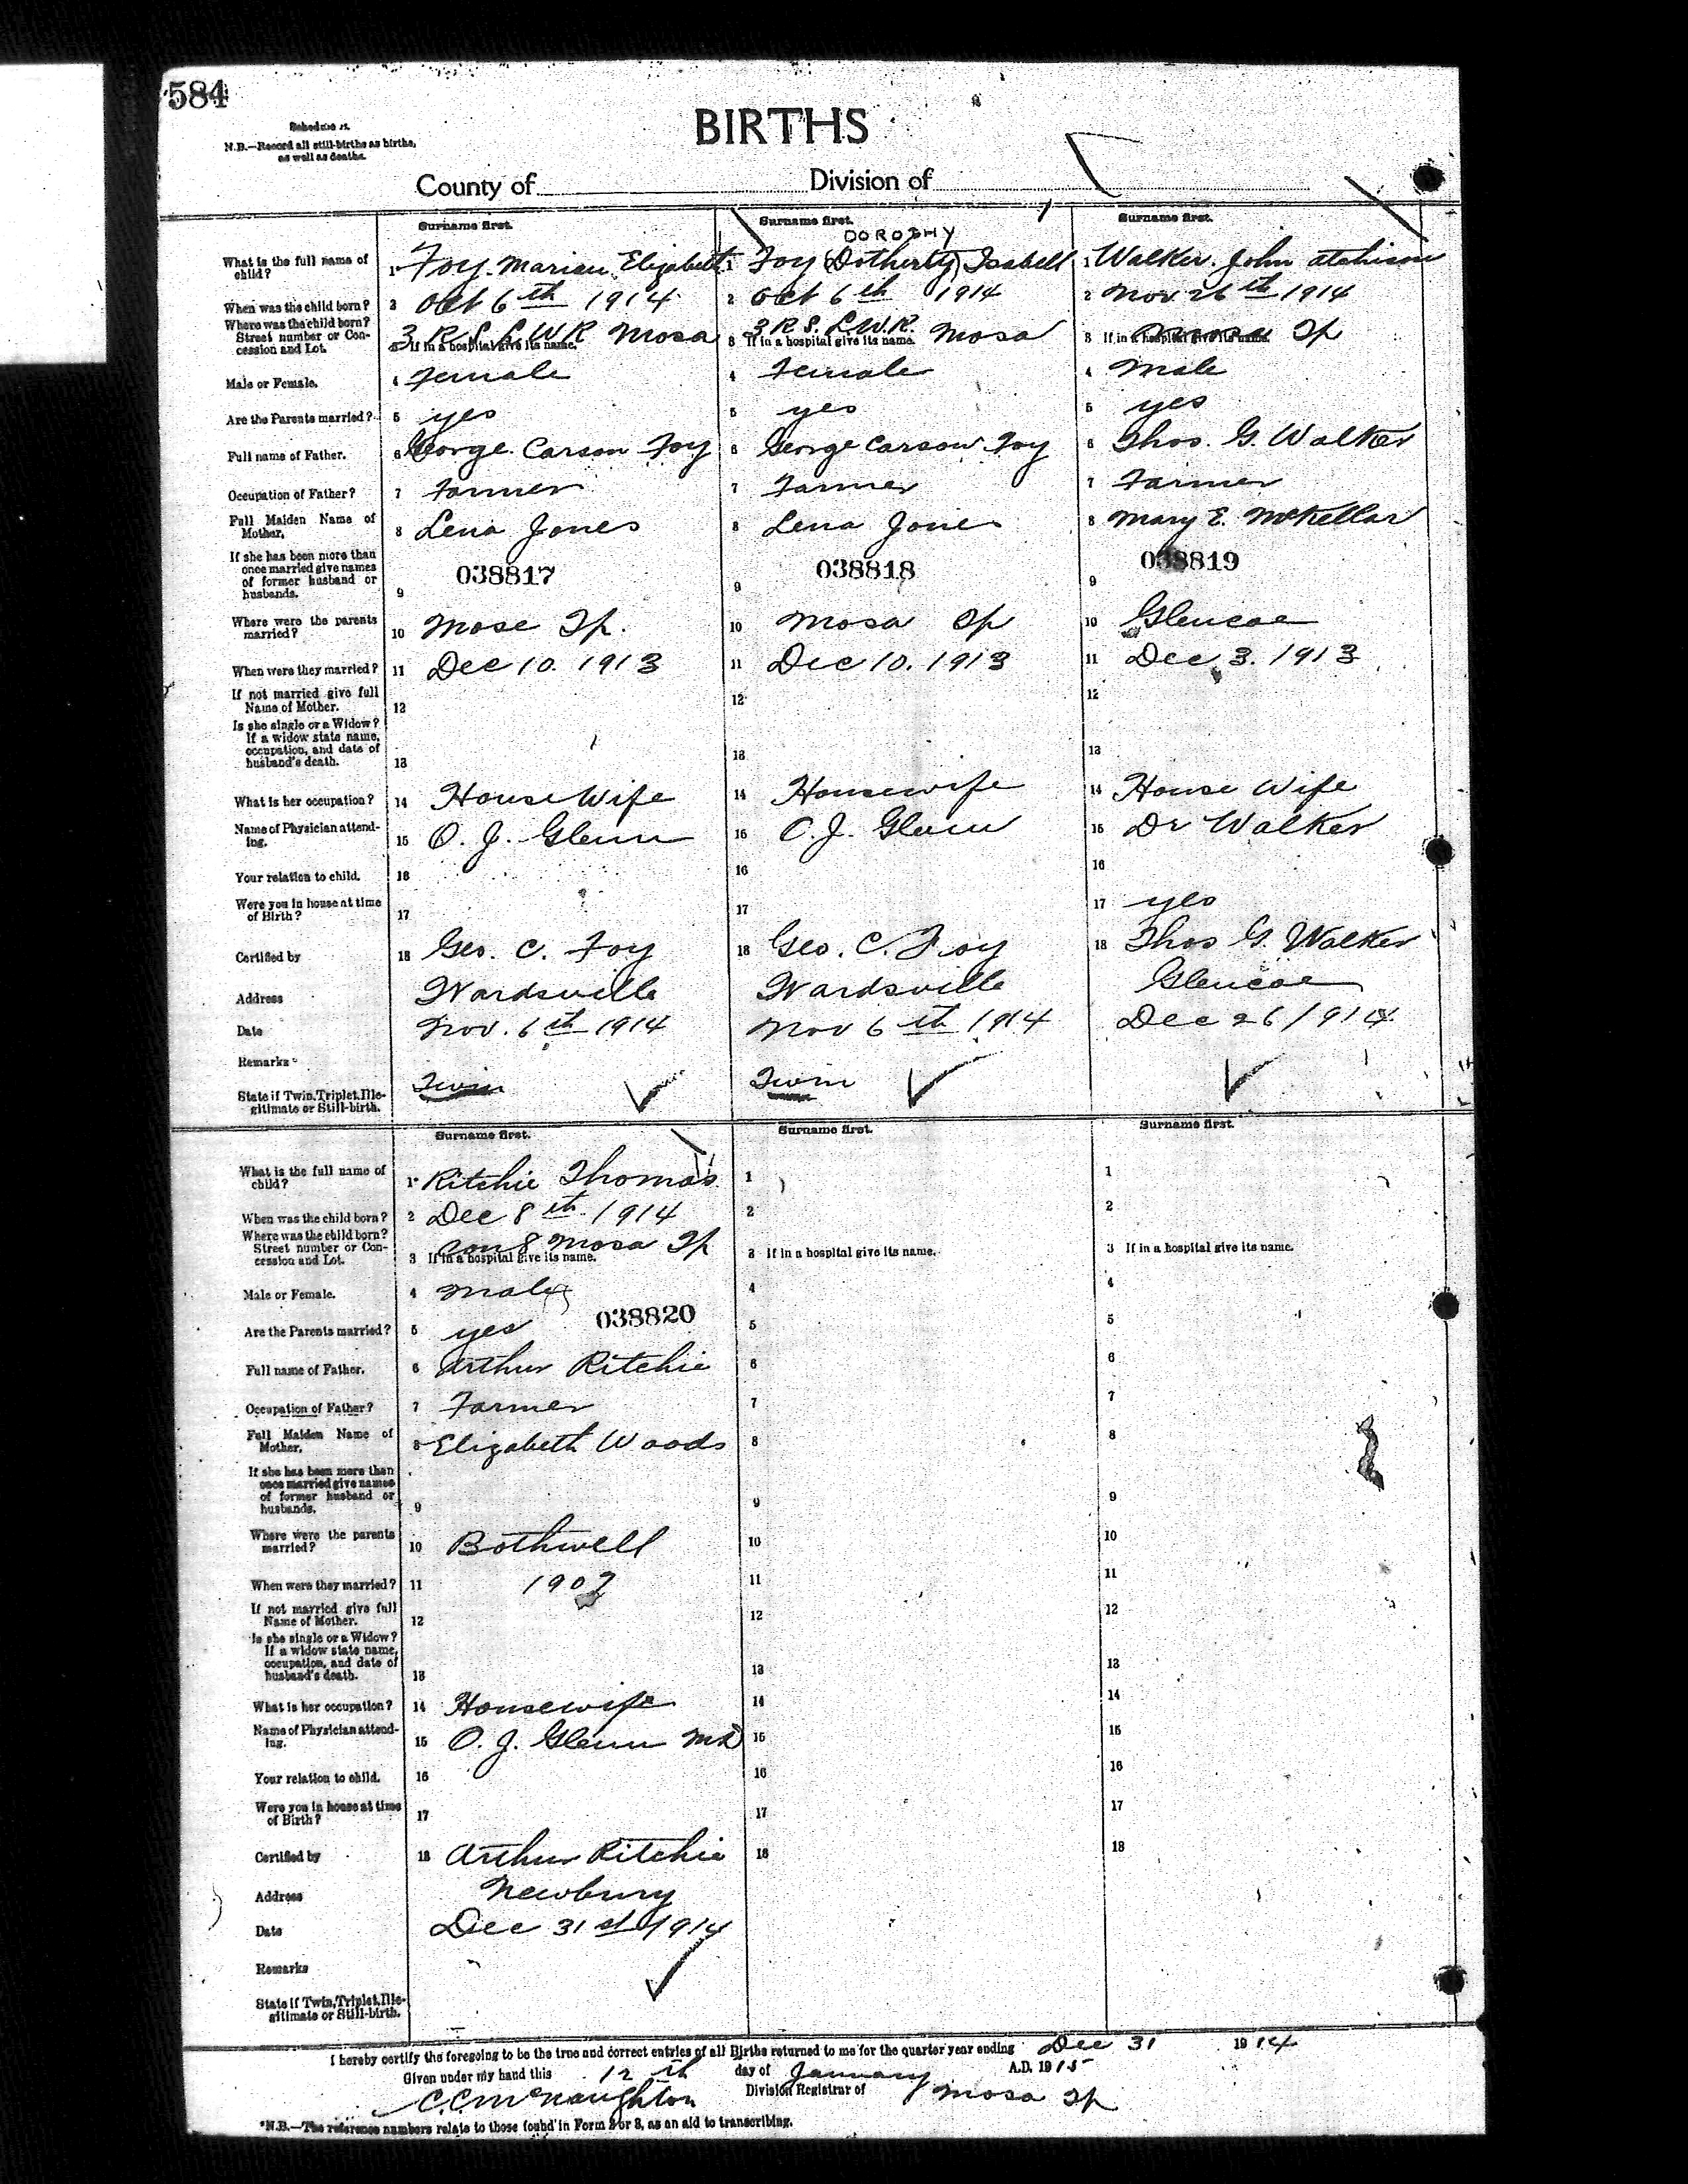 584
Schedule A.
N.B.—Record all still-births as births,
as well as deaths.
BIRTHS
County of
Division of
Surname first.
Surname first.
Surname first.
DOROTHY
What is the full name of child?
1 Foy. Marian Elizabeth
1 Foy (Dotherty) Isabell
1 Walker. John Atchison
When was the child born?
2 Oct 6th 1914
2 Oct 6th 1914
2 Nov 26th 1914
Where was the child born? Street number or Concession and Lot.
3 R S. L W R Mosa
3 If in a hospital give its name.
3 R S. L.W.R. Mosa
3 If in a hospital give its name.
Mosa Tp
3 If in a hospital give its name.
Male or Female.
4 Female
4 Female
4 Male
Are the Parents married?
5 yes
5 yes
5 yes
Full name of Father.
6 George Carson Foy
6 George Carson Foy
6 Thos. G. Walker
Occupation of Father?
7 Farmer
7 Farmer
7 Farmer
Full Maiden Name of Mother.
8 Lena Jones
8 Lena Jones
8 Mary E. McKellar
If she has been more than once married give names of former husband or husbands.
9 038817
9 038818
9 038819
Where were the parents married?
10 Mose Tp.
10 Mosa Tp
10 Glencoe
When were they married?
11 Dec 10. 1913
11 Dec 10. 1913
11 Dec 3. 1913
If not married give full Name of Mother.
12
12
12
Is she single or a Widow? If a widow state name, occupation, and date of husband's death.
13
13
13
What is her occupation?
14 House Wife
14 Housewife
14 House Wife
Name of Physician attending.
15 O. J. Glenn
15 O. J. Glenn
15 Dr Walker
Your relation to child.
16
16
16
Were you in house at time of Birth?
17
17
17 yes
Certified by
18 Geo. C. Foy
18 Geo. C. Foy
18 Thos G. Walker
Address
Wardsville
Wardsville
Glencoe
Date
Nov. 6th 1914
Nov 6th 1914
Dec 26 1914
Remarks
State if Twin, Triplet, Illegitimate or Still-birth.
Twin
Twin
Surname first.
Surname first.
Surname first.
What is the full name of child?
1 Ritchie Thomas
1
1
When was the child born?
2 Dec 8th 1914
2
2
Where was the child born? Street number or Concession and Lot.
Con 8 Mosa Tp
3 If in a hospital give its name.
3 If in a hospital give its name.
3 If in a hospital give its name.
Male or Female.
4 Male
4
4
038820
Are the Parents married?
5 yes
5
5
Full name of Father.
6 Arthur Ritchie
6
6
Occupation of Father?
7 Farmer
7
7
Full Maiden Name of Mother.
8 Elizabeth Woods
8
8
If she has been more than once married give names of former husband or husbands.
9
9
9
Where were the parents married?
10 Bothwell
10
10
When were they married?
11 1907
11
11
If not married give full Name of Mother.
12
12
12
Is she single or a Widow? If a widow state name, occupation, and date of husband's death.
13
13
13
What is her occupation?
14 Housewife
14
14
Name of Physician attending.
15 O. J. Glenn MD
15
15
Your relation to child.
16
16
16
Were you in house at time of Birth?
17
17
17
Certified by
18 Arthur Ritchie
18
18
Address
Newbury
Date
Dec 31st 1914
Remarks
State if Twin, Triplet, Illegitimate or Still-birth.
I hereby certify the foregoing to be the true and correct entries of all Births returned to me for the quarter year ending Dec 31 1914
Given under my hand this 12th day of January A.D. 1915
C.C. McNaughton Division Registrar of Mosa Tp
*N.B.—The reference numbers relate to those found in Form 2 or 3, as an aid to transcribing.